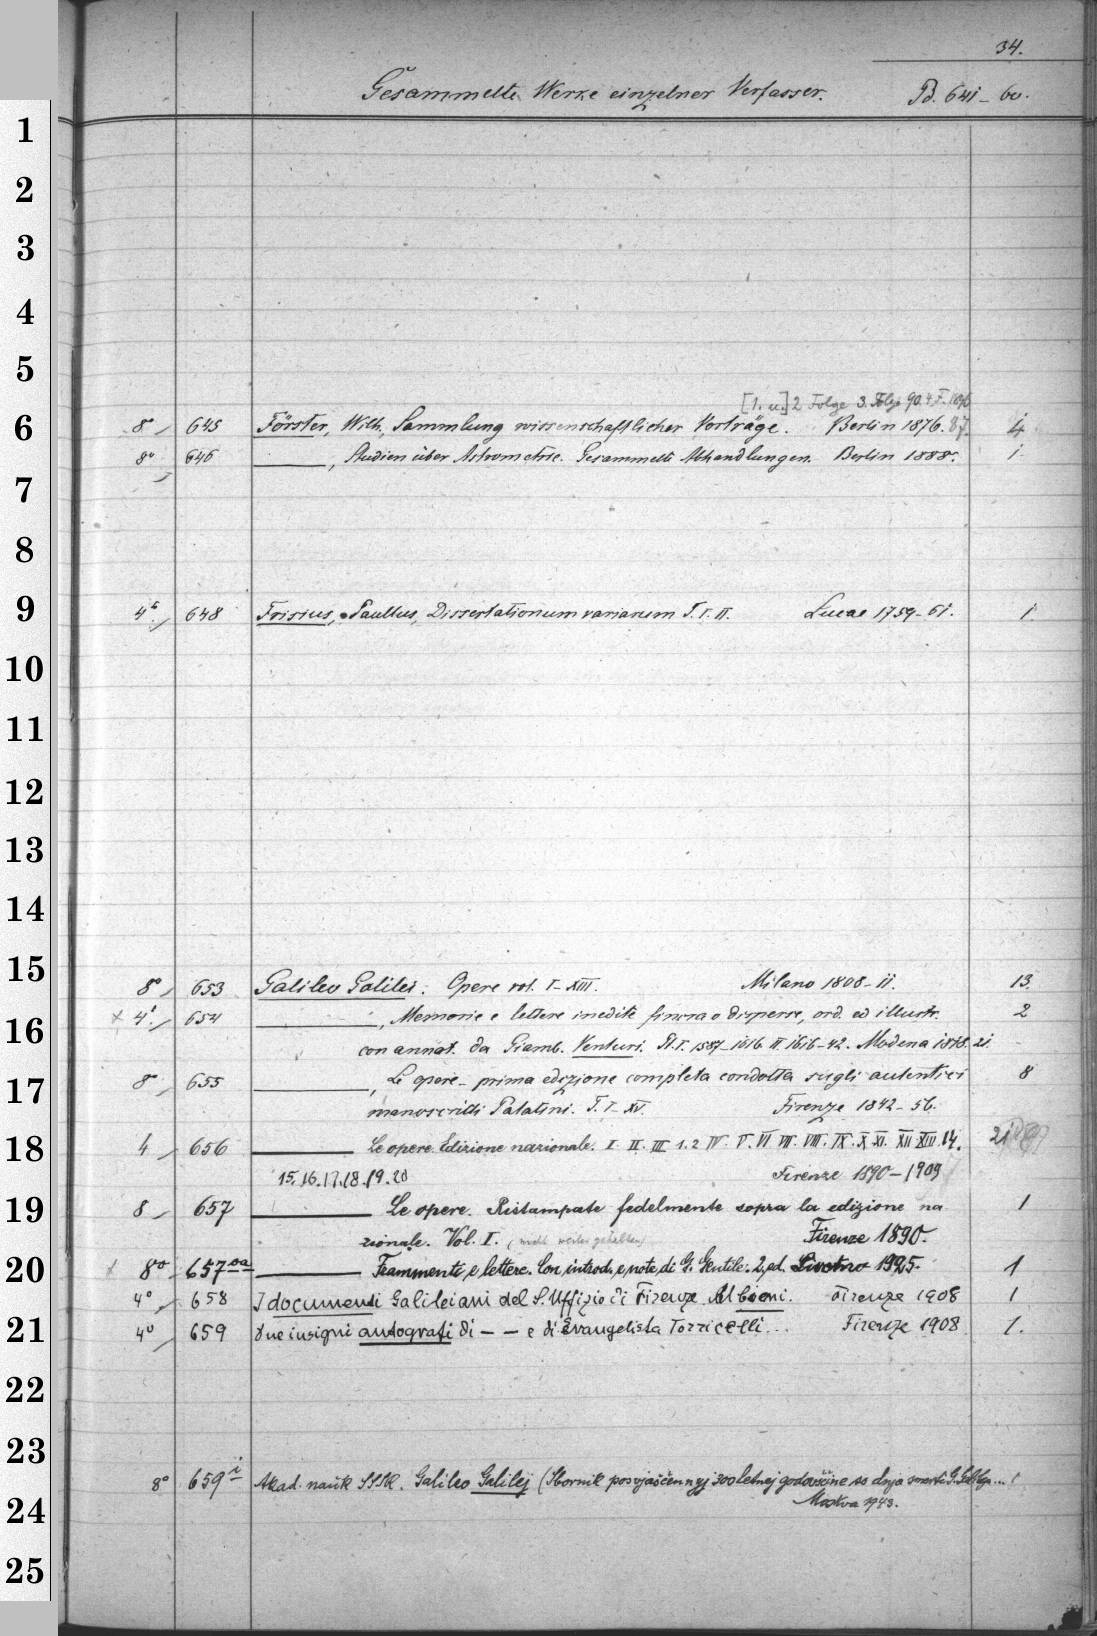 34.
Gesammelte Werke einzelner Verfasser. B. 641-60.
[1. u.] 2 Folge 3. Folge 90. 4. F. 1896
8° 645 Förster, Wilh., Sammlung wissenschaftlicher Vorträge. Berlin 1876. 87. 4
8° 646 ———, Studien über Astrometrie. Gesammelte Abhandlungen. Berlin 1888. 1
4° 648 Frisius, Paullus, Dissertationum variarum T. I. II. Lucae 1759-61. 1.
8° 653 Galileo Galilei. Opere vol. I-XIII. Milano 1808-11. 13.
× 4°. 654 ———, Memorie e lettere inedite finora o disperse, ord. ed illustr. 2
con annot. da Giamb. Venturi. Pt. I. 1587-1616. II. 1616-42. Modena 1818. 21.
8° 655 ———, Le opere. prima edizione completa condotta sugli autentici 8
manoscritti Palatini. T. I-XV. Firenze 1842-56.
4 656 ——— Le opere. Edizione nazionale. I. II. III 1.2 IV. V. VI VII. VIII. IX. X XI. XII XIII. 14. 21
15. 16. 17. 18. 19. 20 Firenze 1890-1909
8 657 ——— Le opere. Ristampate fedelmente sopra la edizione na 1
zionale. Vol. I. (nicht weiter gehalten) Firenze 1890.
8° 657 0a ——— Frammenti e lettere. Con introd. e note di G. Gentile. 2. ed. Livorno 1925. 1
4° 658 I documenti Galileiani del S. Uffizio di Firenze. Firenze 1908 1
4° 659 Due insigni autografi di — — e di Evangelista Torricelli... Firenze 1908 1.
8° 659 1 Akad. nauk SSSR. Galileo Galilej (Sbornik posvjaščennyj 300letnej godovščine so dnja smerti G. Galileja... 1
Moskva 1943.